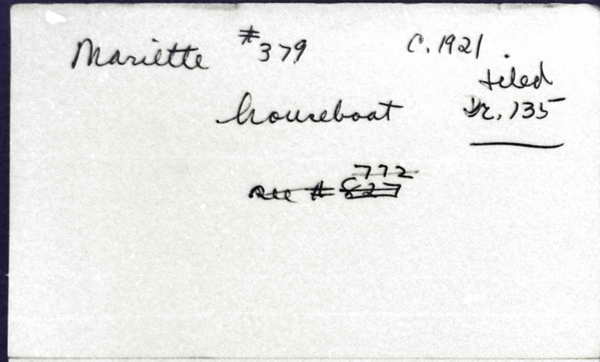 Mariette #379 C. 1921
filed
houseboat Dr. 135
772
see # 827